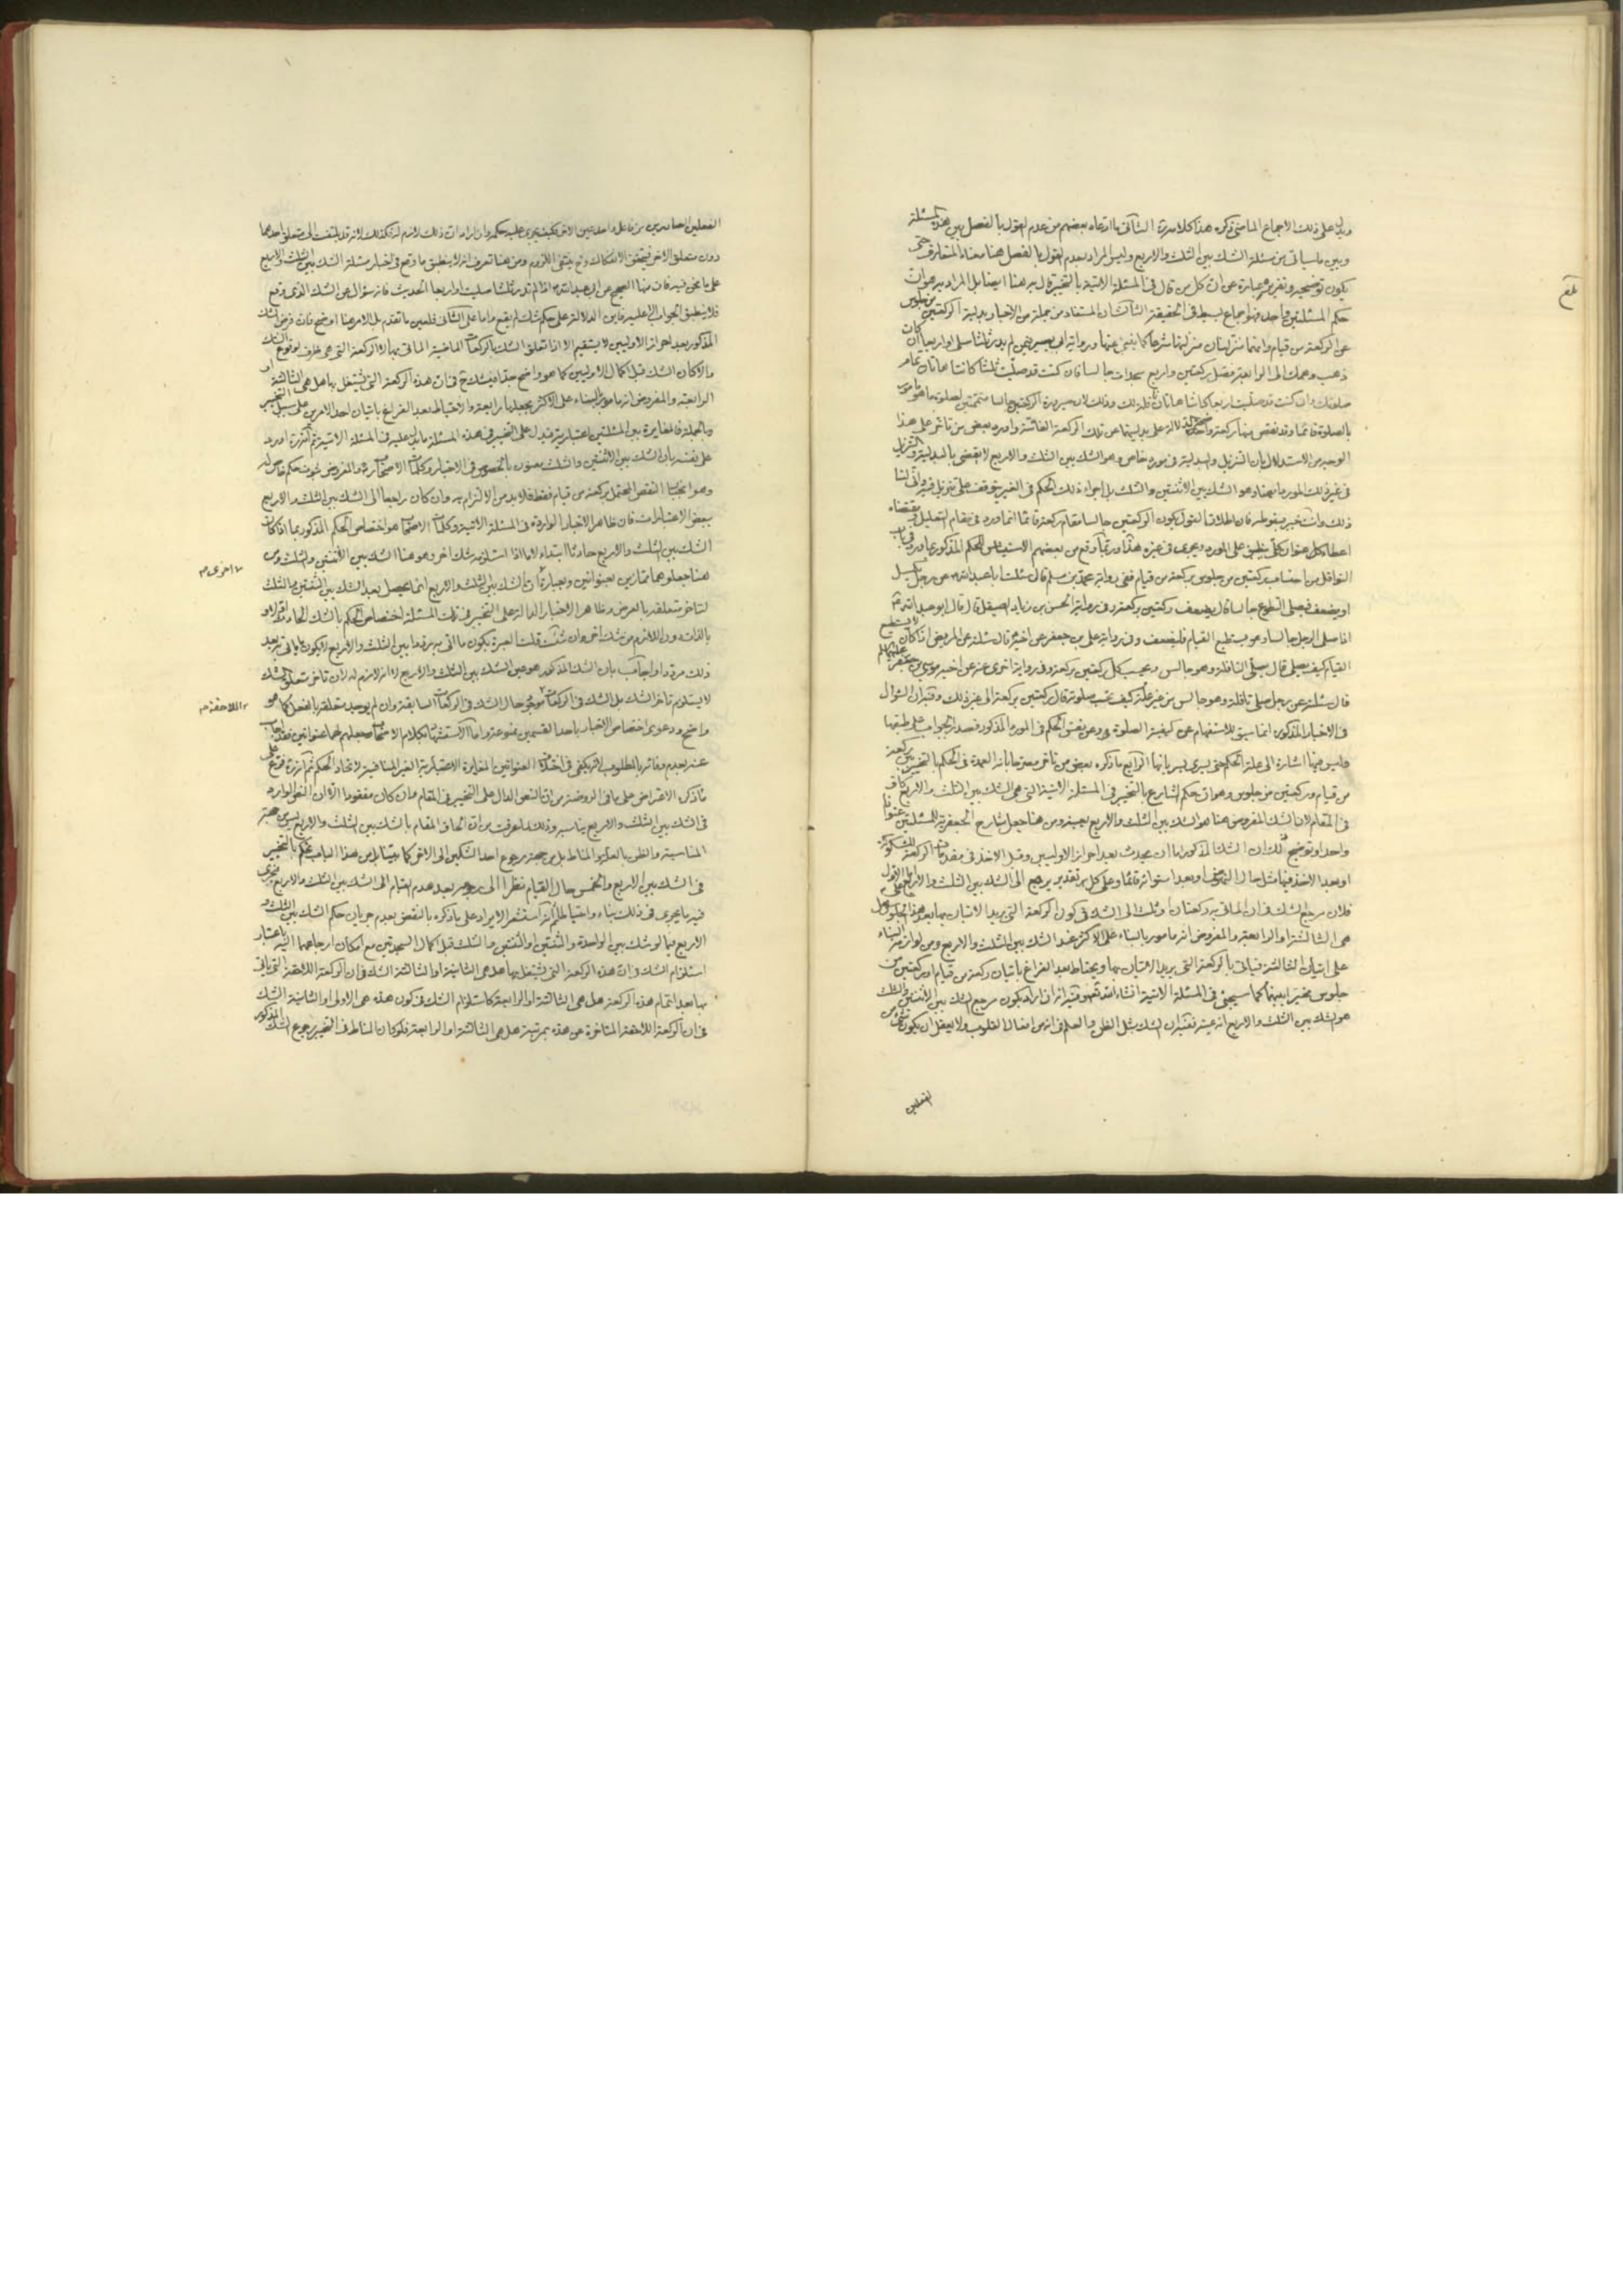 ويدل على ذلك الاجماع الماضى ذكره هذا كلامه الثانى ما ادعاه بعضهم من عدم القول بالفصل بين هذه المسئلة
وبين ما سياتى من مسئلة الشك بين الثلث والاربع وليس المراد بعدم القول بالفصل هنا معناه المتعارف حتى
يكون توضيحه وتقريره عبارة عن ان كل من قال فى المسئلة الاتية بالتخيير قال به هنا ايضا بل المراد به هو ان
حكم المسئلتين واحد فهو اجماع بسيط فى الحقيقة الثالث ان المستفاد من جملة من الاخبار بدلية الركعتين من جلوس
عن الركعة من قيام وانهما منزلتان منزلتها شرعا كما ينبئ عنها رواية ابى بصير فيمن لم يدر ثلثا صلى او اربعا ان كان
ذهب وهمك الى الرابعة فصل ركعتين واربع سجدات جالسا فان كنت قد صليت ثلثا كانتا هاتان تمام
صلوتك وان كنت قد صليت اربعا كانتا هاتان نافلة لك وذلك لان صيرورة الركعتين جالسا متممتين لصلوة ما هو مامور
بالصلوة قائما وقد نقص منها ركعة واضح الدلالة على بدليتهما عن تلك الركعة الفائتة واورد بعض من تاخر على هذا
الوجه من الاستدلال بان التنزيل والبدلية فى مورد خاص وهو الشك بين الثلث والاربع لا يقضى بالبدلية والتنزيل
فى غير ذلك المورد ما هنا وهو الشك بين الاثنتين والثلث بل اجراء ذلك الحكم فى الغير يتوقف على تنزيل فيه وانى لنا
ذلك وانت خبير بسقوطه فان اطلاق القول بكون الركعتين جالسا مقام ركعة قائما انما ورد فى مقام التعليل مقتضاه
اعطاء كل عنوان كلى ينطبق على المورد ويجرى فى غيره هذا وربما وقع من بعضهم الاستيناس للحكم المذكور بما ورد فى باب
النوافل من احتساب ركعتين من جلوس بركعة من قيام ففى رواية محمد بن مسلم قال سئلت ابا عبد الله عن رجل يكسل
او يضعف فيصلى التطوع جالسا قال يضعف ركعتين بركعة وفى رواية الحسن بن زياد الصيقل قال قال ابو عبد الله
اذا صلى الرجل جالسا وهو يستطيع القيام فليضعف وفى رواية على بن جعفر عن اخيه قال سئلته عن المريض اذا كان لا يستطيع
القيام كيف يصلى قال يصلى النافلة وهو جالس ويحسب كل ركعتين بركعة وفى رواية اخرى عنه عن اخيه موسى بن جعفر عليهما السلم
قال سئلته عن رجل صلى نافلة وهو جالس من غير علة كيف يحتسب صلوته قال ركعتين بركعة الى غير ذلك وفيه ان السؤال
فى الاخبار المذكورة انما سيق للاستفهام عن كيفية الصلوة وعن نفس الحكم فى المورد المذكور فصدر الجواب على طبقها
وليس فيها اشارة الى علة الحكم حتى يسرى بسريانها الرابع ما ذكره بعض من تاخر مصرحا بانه العمدة فى الحكم بالتخيير بين ركعة
من قيام وركعتين من جلوس وهو ان حكم الشارع بالتخيير فى المسئلة الاتية التى هى الشك بين الثلث والاربع كاف
فى المقام لان الشك المفروض هنا هو الشك بين الثلث والاربع بعينه ومن هنا جعل شارح الجعفرية للمسئلتين عنوانا
واحدا وتوضيح ذلك ان الشك المذكور اما ان يحدث بعد احراز الاوليين وقبل الاخذ فى مقدمات الركعة المشكوكة
او بعد الاخذ فيها مثل حال النهوض او بعد استوائه قائما وعلى كل تقدير يرجع الى الشك بين الثلث والاربع اما الاول
فلان مرجع الشك فى ان الماتى به ركعتان او ثلث الى الشك فى كون الركعة التى يريد الاتيان بها بعد هذا الجلوس هل
هى الثالثة او الرابعة والمفروض انه مامور بالبناء على الاكثر عند الشك بين الثلث والاربع ومن لوازمه البناء
على اتيان الثالثة فياتى بالركعة التى يريد الاتيان بها ويحتاط بعد الفراغ باتيان ركعة من قيام او ركعتين من
جلوس مخيرا بينهما كما سيجئ فى المسئلة الاتية انشاء الله تعالى وفيه انه ان اراد بكون مرجع الشك بين الاثنتين والثلث
هو الشك بين الثلث والاربع انه عينه ففيه ان الشك مثل الظن والعلم فى انه من افعال القلوب ولا يعقل ان يكون شئ من
الفعلين
الفعلين الصادرين من فاعل واحد عين الاخر فكيف يجرى عليه حكمه وان اراد ان ذلك لازم له فكذلك لانه قد يلتفت الى متعلق احدهما
دون متعلق الاخر فيتحقق الانفكاك ومع ينتفى اللزوم ومن هنا تعرف انه لا ينطبق ما وقع فى اخبار مسئلة الشك بين الثلث والاربع
على ما نحن فيه فان منها الصحيح عن ابى عبد الله اذا لم تدر ثلثا صليت او اربعا الحديث فانه سؤال عن الشك الذى وقع
فلا ينطبق الجواب الا عليه فاين الدلالة على حكم شك لم يقع واما على الثانى فلعين ما تقدم بل الامر هنا اوضح فان فرض الشك
المذكور بعد احراز الاوليين لا يستقيم الا اذا تعلق الشك بالركعات الماضية الماتى بها لا الركعة التى هى ظرف لوقوع الشك
والا كان الشك قبل اكمال الاوليين كما هو واضح جدا فيشك ح فى ان هذه الركعة التى يشتغل بها هل هى الثالثة او
الرابعة والمفروض انه مامور بالبناء على الاكثر بجعلها رابعة والاحتياط بعد الفراغ باتيان احد الامرين على سبيل التخيير
وبالجملة فالمغايرة بين المسئلتين اعتبارية فيدل على التخيير فى هذه المسئلة ما يدل عليه فى المسئلة الاتية ثم انه اورد
على نفسه بان الشك بين الاثنتين والثلث معنون بالخصوص فى الاخبار وكلمات الاصحاب والمفروض ثبوت حكم خاص له
وهو انجبار النقص المحتمل بركعة من قيام فقط فلا بد من الالتزام به وان كان راجعا الى الشك بين الثلث والاربع
ببعض الاعتبارات فان ظاهر الاخبار الواردة فى المسئلة الاتية وكلمات الاصحاب هو اختصاص الحكم المذكور بما اذا كان
الشك بين الثلث والاربع حادثا ابتداء لا ما اذا استلزمه شك اخر وهو هنا الشك بين الاثنتين والثلث ومن
هنا جعلوهما ممتازين بعنوانين وبعبارة اخرى الشك بين الثلث والاربع انما يحصل بعد الشك بين الثنتين والثلث
لتاخر متعلقه بالعرض وظاهر الاخبار الدالة على التخيير فى تلك المسئلة اختصاص الحكم بالشك الحادث اولا و
بالذات دون اللازم من شك اخر وان شئت قلت العبرة بكون ما اتى به مرددا بين الثلث والاربع لا بكون ما ياتى به بعد
ذلك مرددا واجاب بان الشك المذكور هو عين الشك بين الثلث والاربع لا انه لازم له لان تاخر متعلق الشك
لا يستلزم تاخر الشك بل الشك فى الركعات اللاحقة موجود حال الشك فى الركعات السابقة وان لم يوجد متعلقه بالفعل كما هو
واضح ودعوى اختصاص الاخبار باحد القسمين ممنوعة واما الاستشهاد بكلام الاصحاب وجعلهم لهما عنوانين فقد اجاب
عنه بعدم وفائه بالمطلوب لانه يكفى فى اختلاف العنوانين المغايرة الاعتبارية الغير المنافية لاتحاد الحكم ثم انه قده فرع على
ما ذكره الاعتراض على ما فى الروضة من ان النص الدال على التخيير فى المقام وان كان مفقودا الا ان النص الوارد
فى الشك بين الثلث والاربع يناسبه وذلك لما عرفت من ان الحاق المقام بالشك بين الثلث والاربع ليس من جهة
المناسبة والظن بالعلة والمناط بل من جهة رجوع احد الشكين الى الاخر كما بيناه ومن هذا الباب يحكم بالتخيير
فى الشك بين الاربع والخمس حال القيام نظرا الى رجوعه بعد هدم القيام الى الشك بين الثلث والاربع فيجرى
فيه ما يجرى فى ذلك بناء واحتياطا ثم انه استشعر الايراد على ما ذكره بالنقض بعدم جريان حكم الشك بين الثلث و
الاربع فيما لو شك بين الواحدة والثنتين او الثنتين والثلث قبل اكمال السجدتين مع امكان ارجاعهما اليه باعتبار
استلزام الشك فى ان هذه الركعة التى يشتغل بها هل هى الثانية او الثالثة الشك فى ان الركعة اللاحقة التى ياتى
بها بعد اتمام هذه الركعة هل هى الثالثة او الرابعة كاستلزام الشك فى كون هذه هى الاولى او الثانية الشك
فى ان الركعة اللاحقة المتاخرة عن هذه بمرتبة هل هى الثالثة او الرابعة فلو كان المناط فى التخيير رجوع الشك المذكور
اخرى م
اللاحقة م